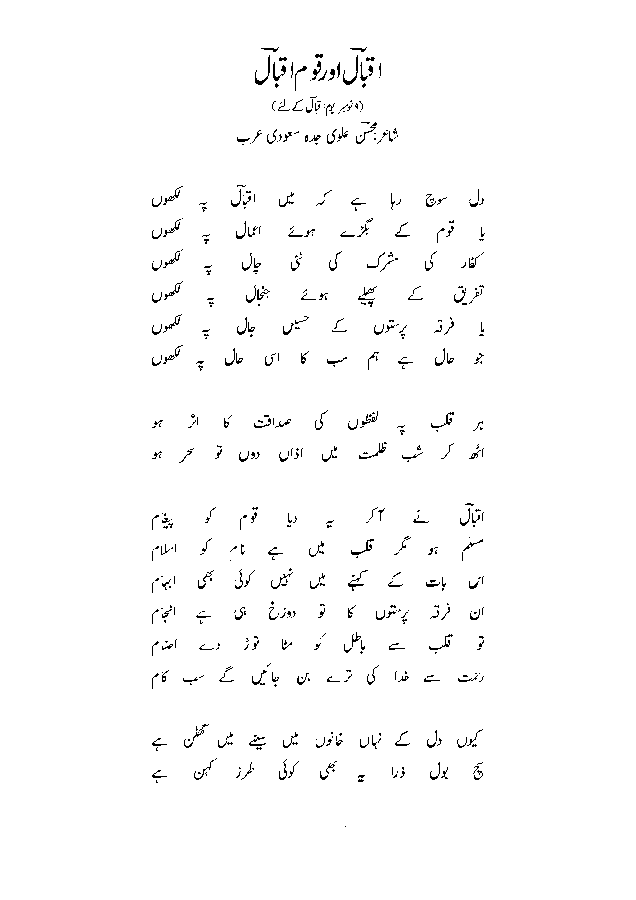 اقبالؔ اور قومِ اقبالؔ
(۹ نومبر یومِ اقبالؔ کے لئے)
شاعر محسنؔ علوی جدہ سعودی عرب
دل سوچ رہا ہے کہ میں اقبالؔ پہ لکھوں
یا قوم کے بگڑے ہوئے اعمال پہ لکھوں
کفار کی مشرک کی نئی چال پہ لکھوں
تفریق کے پھیلے ہوئے جنجال پہ لکھوں
یا فرقہ پرستوں کے حسیں جال پہ لکھوں
جو حال ہے ہم سب کا اسی حال پہ لکھوں
ہر قلب پہ لفظوں کی صداقت کا اثر ہو
اٹھ کر شب ظلمت میں اذاں دوں تو سحر ہو
اقبالؔ نے آکر یہ دیا قوم کو پیغام
مسلم ہو مگر قلب میں ہے نام کو اسلام
اس بات کے کہنے میں نہیں کوئی بھی ابہام
ان فرقہ پرستوں کا تو دوزخ ہی ہے انجام
تو قلب سے باطل کو مٹا توڑ دے اصنام
رحمت سے خدا کی ترے بن جائیں گے سب کام
کیوں دل کے نہاں خانوں میں سینے میں گھٹن ہے
سچ بول ذرا یہ بھی کوئی طرز کہن ہے